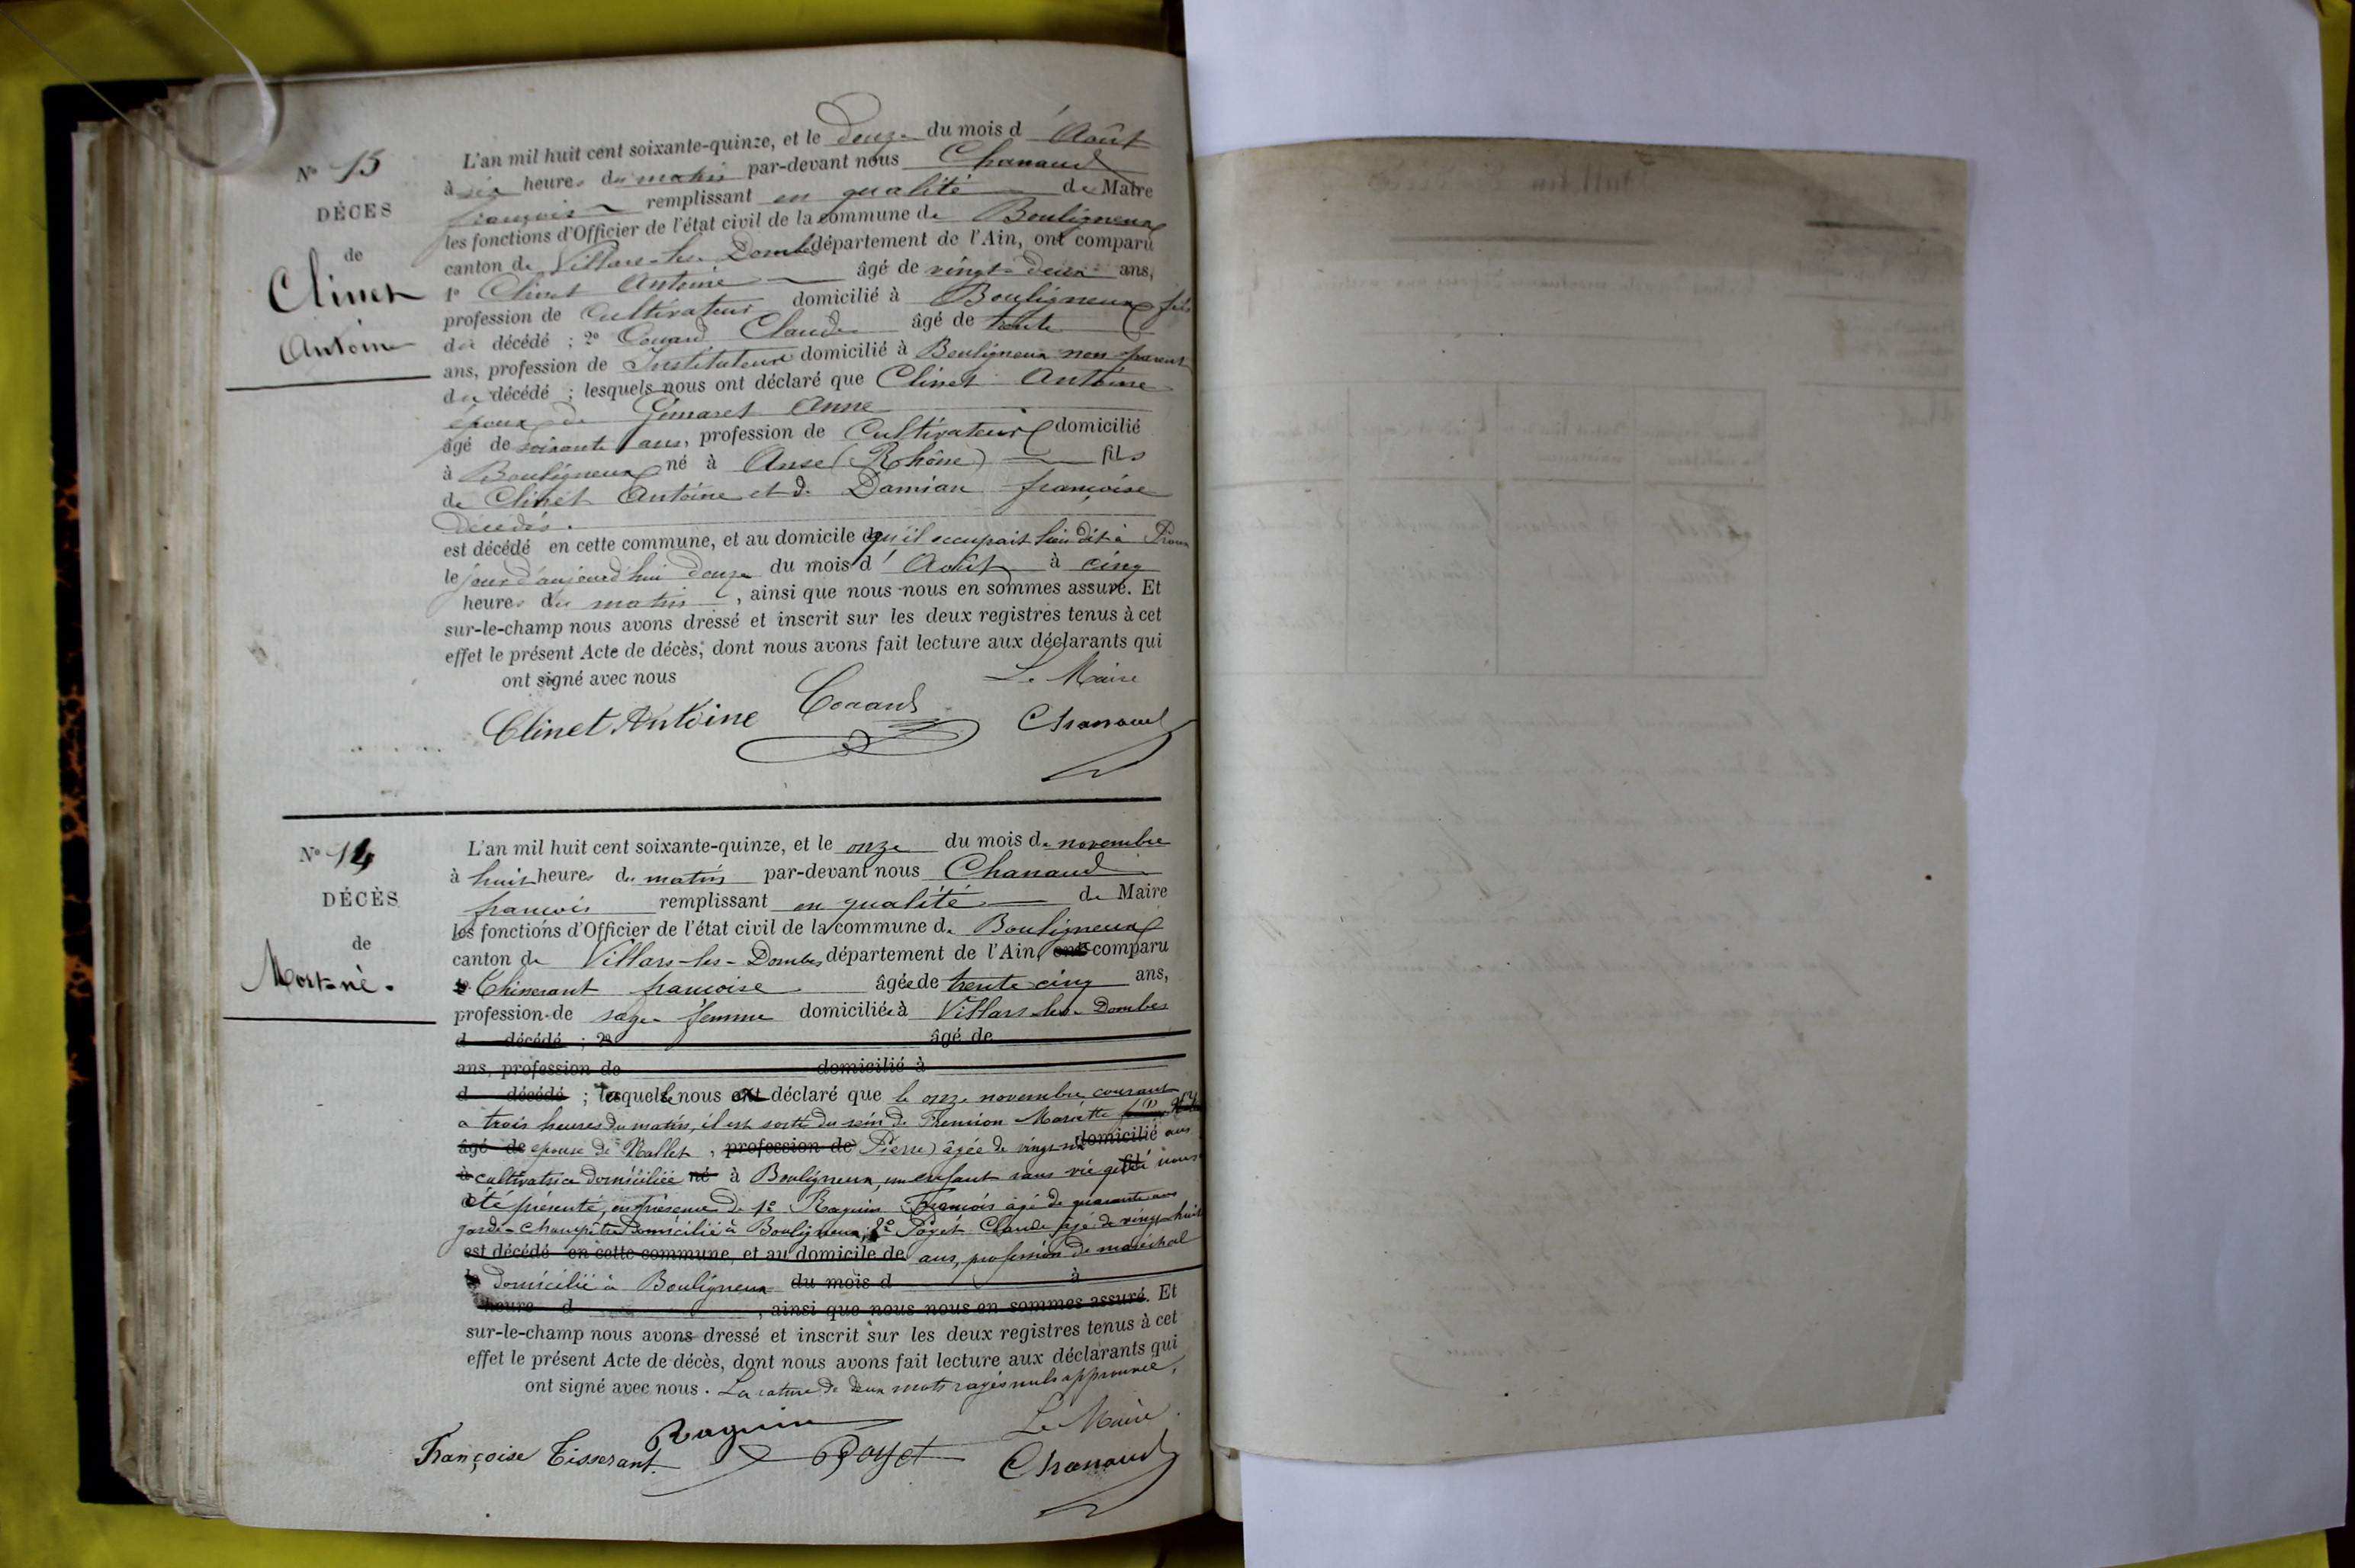 N° 13
DÉCES
de
Clinet
Antoine
L'an mil huit cent soixante-quinze, et le douze du mois d' Août
à six heures du matin par-devant nous Chanaud
françois remplissant en qualité de Maire
les fonctions d'Officier de l'état civil de la commune de Bouligneux
canton de Villars-les-Dombes département de l'Ain, ont comparu
1° Clinet Antoine âgé de vingt-deux ans,
profession de Cultivateur domicilié à Bouligneux fils
du décédé ; 2° Couard Claude âgé de trente
ans, profession de Instituteur domicilié à Bouligneux non parent
du décédé ; lesquels nous ont déclaré que Clinet Antoine
époux de Gimaret Anne
âgé de soixante ans, profession de Cultivateur domicilié
à Bouligneux né à Anse (Rhône) fils
de Clinet Antoine et de Damian françoise
décédés.
est décédé en cette commune, et au domicile qu'il occupait lieu dit à
le jour d'aujourd'hui douze du mois d' Août à cinq
heures du matin, ainsi que nous nous en sommes assuré. Et
sur-le-champ nous avons dressé et inscrit sur les deux registres tenus à cet
effet le présent Acte de décès, dont nous avons fait lecture aux déclarants qui
ont signé avec nous
Le Maire
Clinet Antoine Couard Chanaud
N° 14
DÉCÈS
de
Mort-né.
L'an mil huit cent soixante-quinze, et le onze du mois de novembre
à huit heures du matin par-devant nous Chanaud
françois remplissant en qualité de Maire
les fonctions d'Officier de l'état civil de la commune de Bouligneux
canton de Villars-les-Dombes département de l'Ain, ont comparu
1° françoise âgée de trente cinq ans,
profession de sage-femme domiciliée à Villars-les-Dombes
d décédé ; 2° âgé de
ans, profession de domicilié à
d décédé ; laquelle nous ont déclaré que le onze novembre courant
à trois heures du matin, il est sorti du sein de Mariette
âgé de épouse de Nallet, profession de Pierre) âgée de domicilié ans
à cultivatrice domiciliée né à Bouligneux, un enfant sans vie qui fils nous
a été présenté, en présence de 1° Raguin François âgé de quarante ans
garde-champêtre domicilié à Bouligneux, 2° Poyet Claude âgé de vingt-huit
est décédé en cette commune, et au domicile de ans, profession de maréchal
le domicilié à Bouligneux du mois d à
heure d , ainsi que nous nous en sommes assuré. Et
sur-le-champ nous avons dressé et inscrit sur les deux registres tenus à cet
effet le présent Acte de décès, dont nous avons fait lecture aux déclarants qui
ont signé avec nous. La rature de deux mots rayés nuls approuvée.
Le Maire
Françoise Tisserant. Raguin Poyet Chanaud